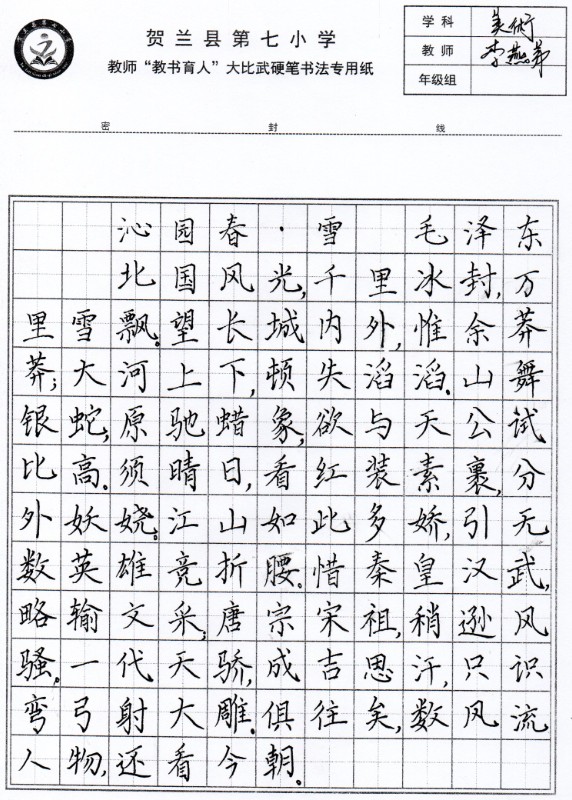 贺兰县第七小学
教师“教书育人”大比武硬笔书法专用纸
学科 美術
教师 李燕
年级组
密 封 线
沁园春·雪 毛泽东
北国风光,千里冰封,万
里雪飘。望长城内外,惟余莽
莽;大河上下,顿失滔滔。山舞
银蛇,原驰蜡象,欲与天公试
比高。须晴日,看红装素裹,分
外妖娆。江山如此多娇,引无
数英雄竞折腰。惜秦皇汉武,
略输文采;唐宗宋祖,稍逊风
骚。一代天骄,成吉思汗,只识
弯弓射大雕。俱往矣,数风流
人物,还看今朝。